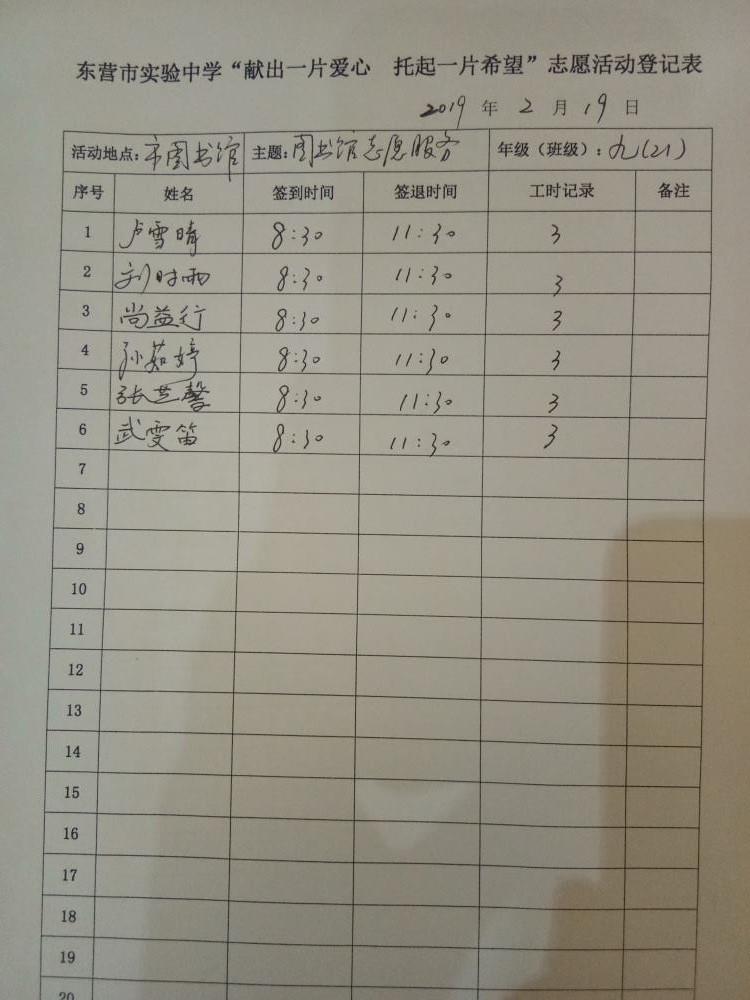 东营市实验中学“献出一片爱心 托起一片希望”志愿活动登记表
2019 年 2 月 19 日
活动地点：市图书馆 主题：图书馆志愿服务 年级（班级）：九(21)
序号 姓名 签到时间 签退时间 工时记录 备注
1 卢雪晴 8:30 11:30 3
2 刘时雨 8:30 11:30 3
3 尚益行 8:30 11:30 3
4 孙茹婷 8:30 11:30 3
5 张芝馨 8:30 11:30 3
6 武雯笛 8:30 11:30 3
7
8
9
10
11
12
13
14
15
16
17
18
19
20